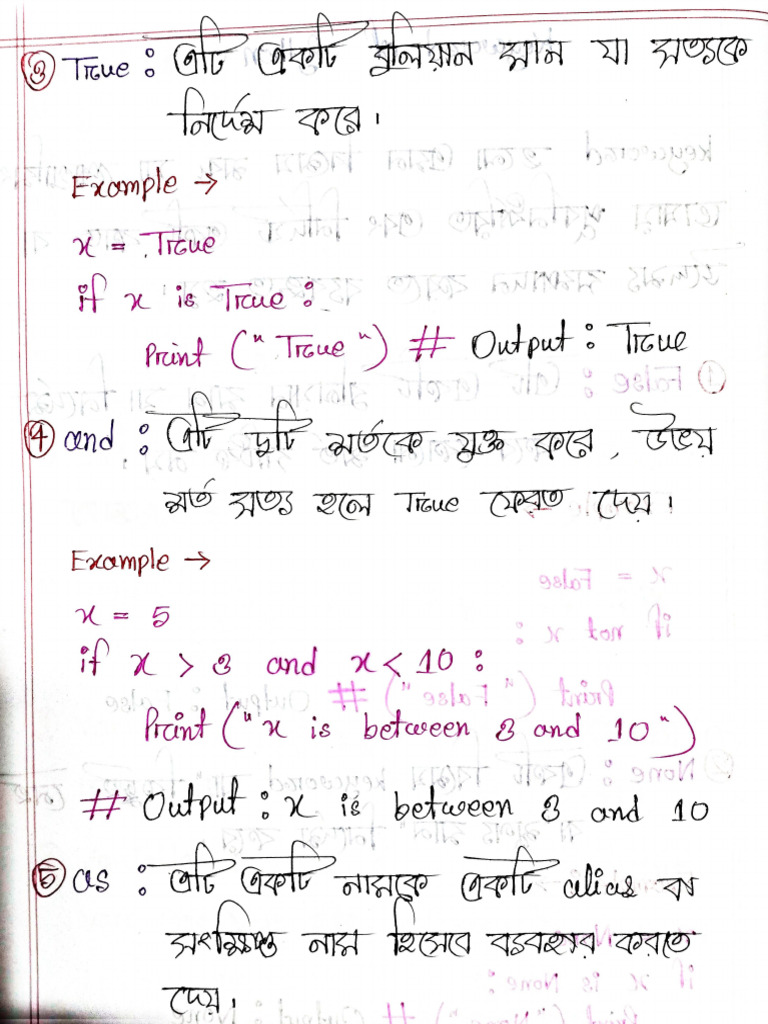 ③ True : এটি একটি বুলিয়ান মান যা সত্যকে
নির্দেশ করে।
Example →
x = True
if x is True :
Print ("True") # Output : True
④ and : এটি দুটি শর্তকে যুক্ত করে, উভয়
শর্ত সত্য হলে True ফেরত দেয়।
Example →
x = 5
if x > 3 and x < 10 :
Print ("x is between 3 and 10")
# Output : x is between 3 and 10
⑤ as : এটি একটি নামকে একটি alias বা
সংক্ষিপ্ত নাম হিসেবে ব্যবহার করতে
দেয়।